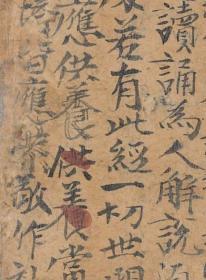 讀誦為人解說
若有此經一切世
應供養供養當
皆應供敬作礼